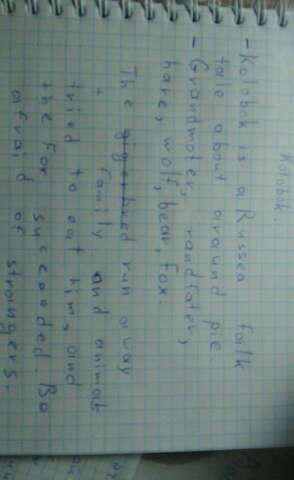 Kolobok.
- Kolobok is a Russea falk
tale about around pie
- Grandmoter, randfater,
hare, wolf, bear, fox.
The run away
+ family and animals
tried to eat him, and
the fox succeeded. Be
afraid of strangers.